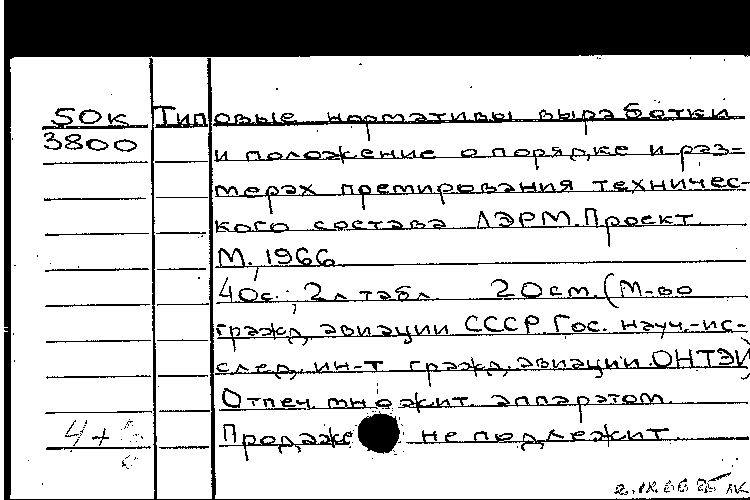 50к Типовые нормативы выработки
3800
и положение о порядке и раз-
мерах премирования техничес-
кого состава ЛЭРМ. Проект.
М., 1966.
40с.; 2л табл. 20см. (М-во
гражд. авиации СССР. Гос. науч.-ис-
след. ин-т гражд. авиации. ОНТЭИ)
Отпеч. множит. аппаратом.
Продаже не подлежит.
4+